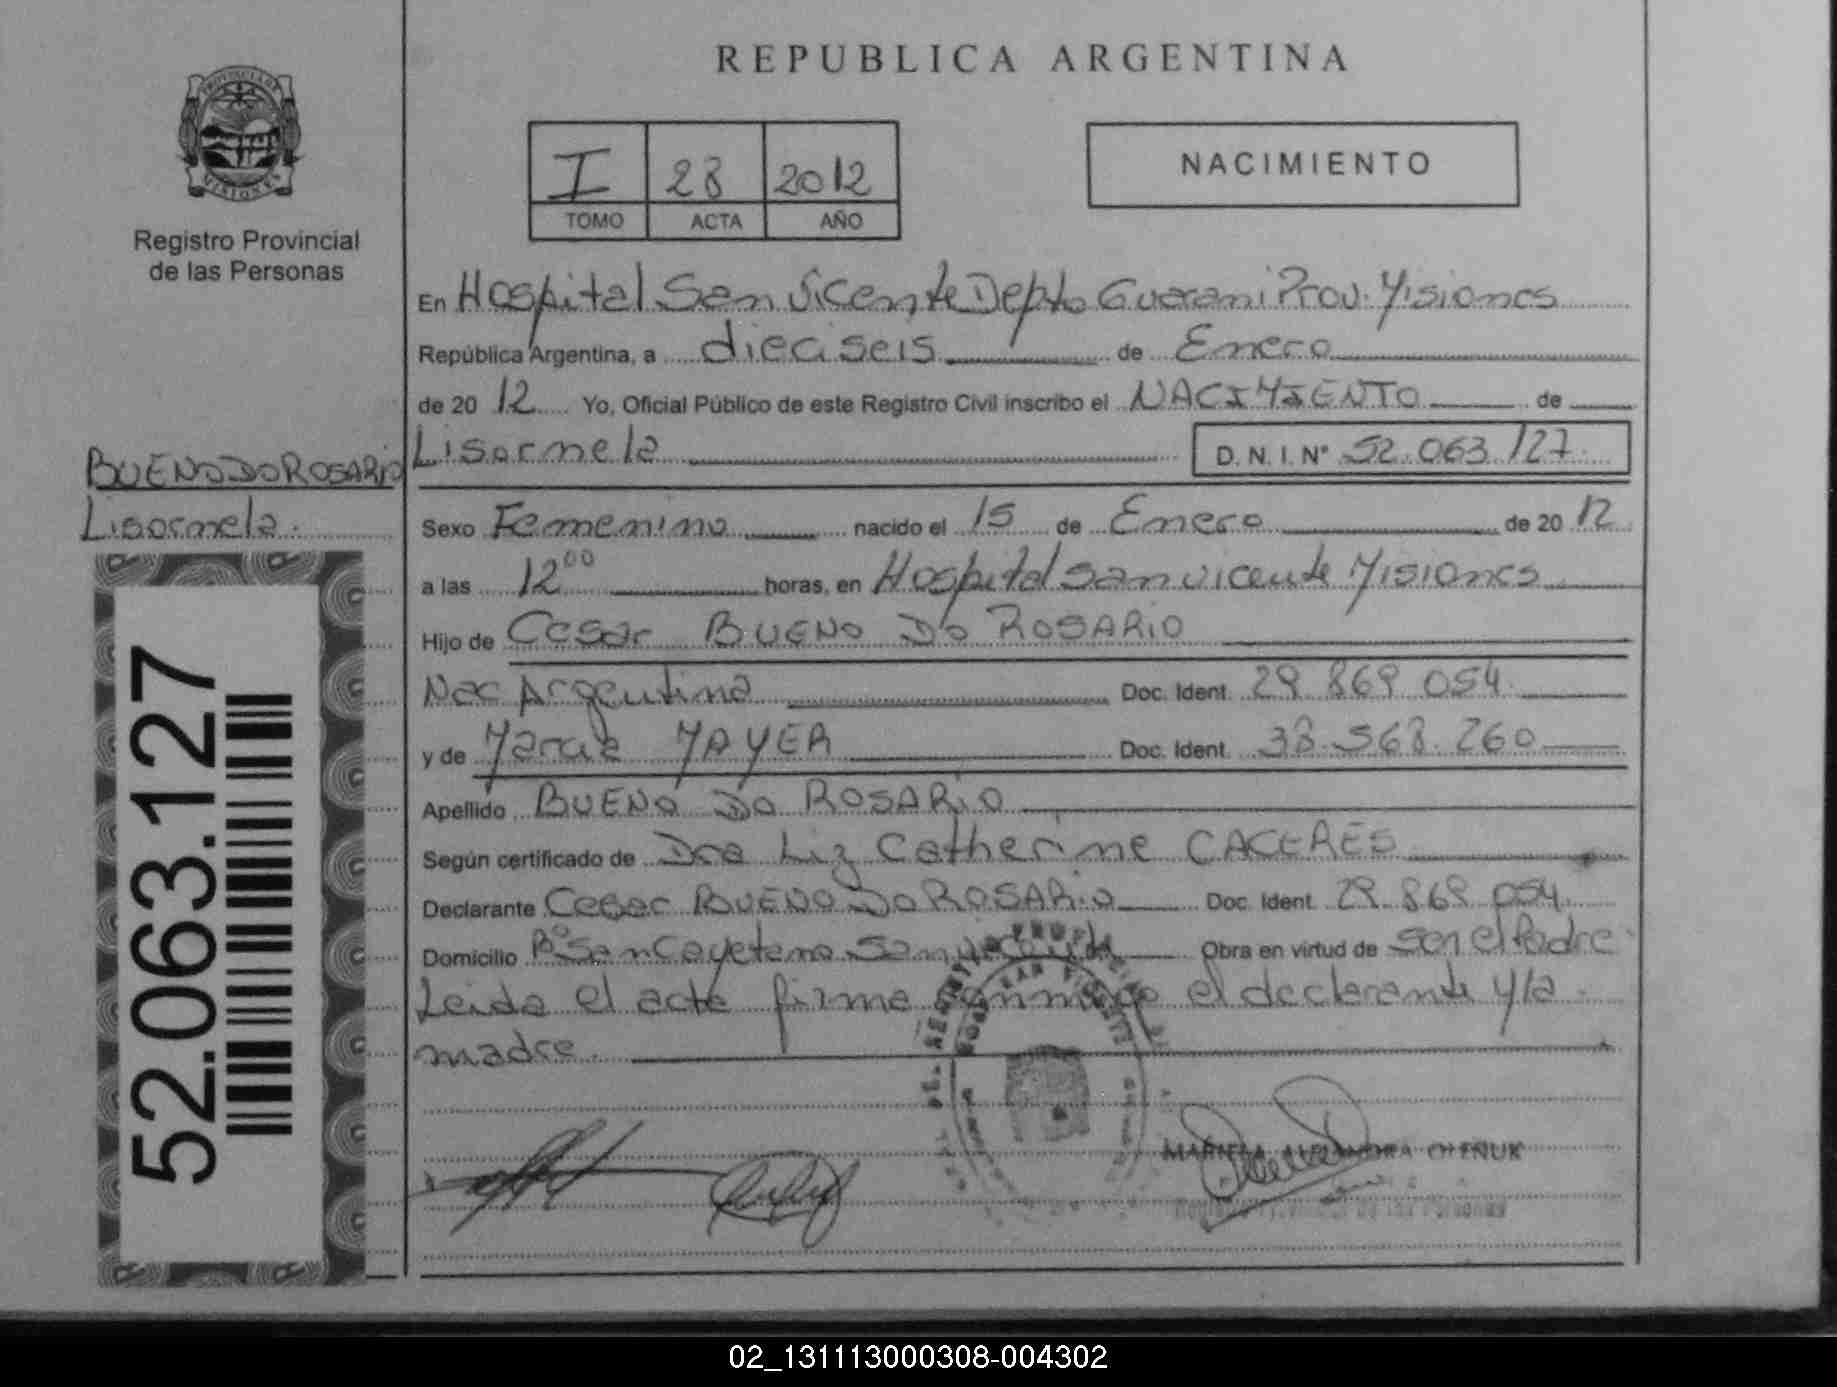 REPUBLICA ARGENTINA
PROVINCIA DE
MISIONES
Registro Provincial
de las Personas
I 28 2012
TOMO ACTA AÑO
NACIMIENTO
En Hospital San Vicente Depto Guarani Prov. Misiones
República Argentina, a dieciseis de Enero
de 20 12 Yo, Oficial Público de este Registro Civil inscribo el NACIMIENTO de
Lisarmela D. N. I. N° 52.063.127
BUENO DO ROSARIO
Lisarmela.
Sexo Femenino nacido el 15 de Enero de 20 12
a las 12 00 horas, en Hospital San Vicente Misiones
Hijo de Cesar BUENO DO ROSARIO
Nac Argentina Doc. Ident. 29.869.054
y de Maria MAYER Doc. Ident. 38.568.260
Apellido BUENO DO ROSARIO
Según certificado de Dra Liz Catherine CACERES
Declarante Cesar BUENO DO ROSARIO Doc. Ident. 29.869.054.
Domicilio B° San Cayetano San Vicente Obra en virtud de ser el Padre
Leida el acta firma conmigo el declarante y la
madre.
52.063.127
MARIELA ALEJANDRA OLEÑUK
Registro Provincial de las Personas
02_131113000308-004302